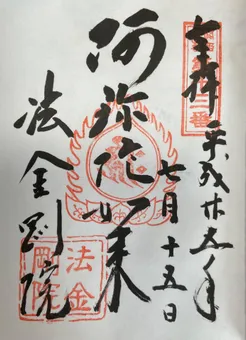 奉拝
平成廿五年
七月十五日
阿弥陀如来
法金剛院
法金
剛院